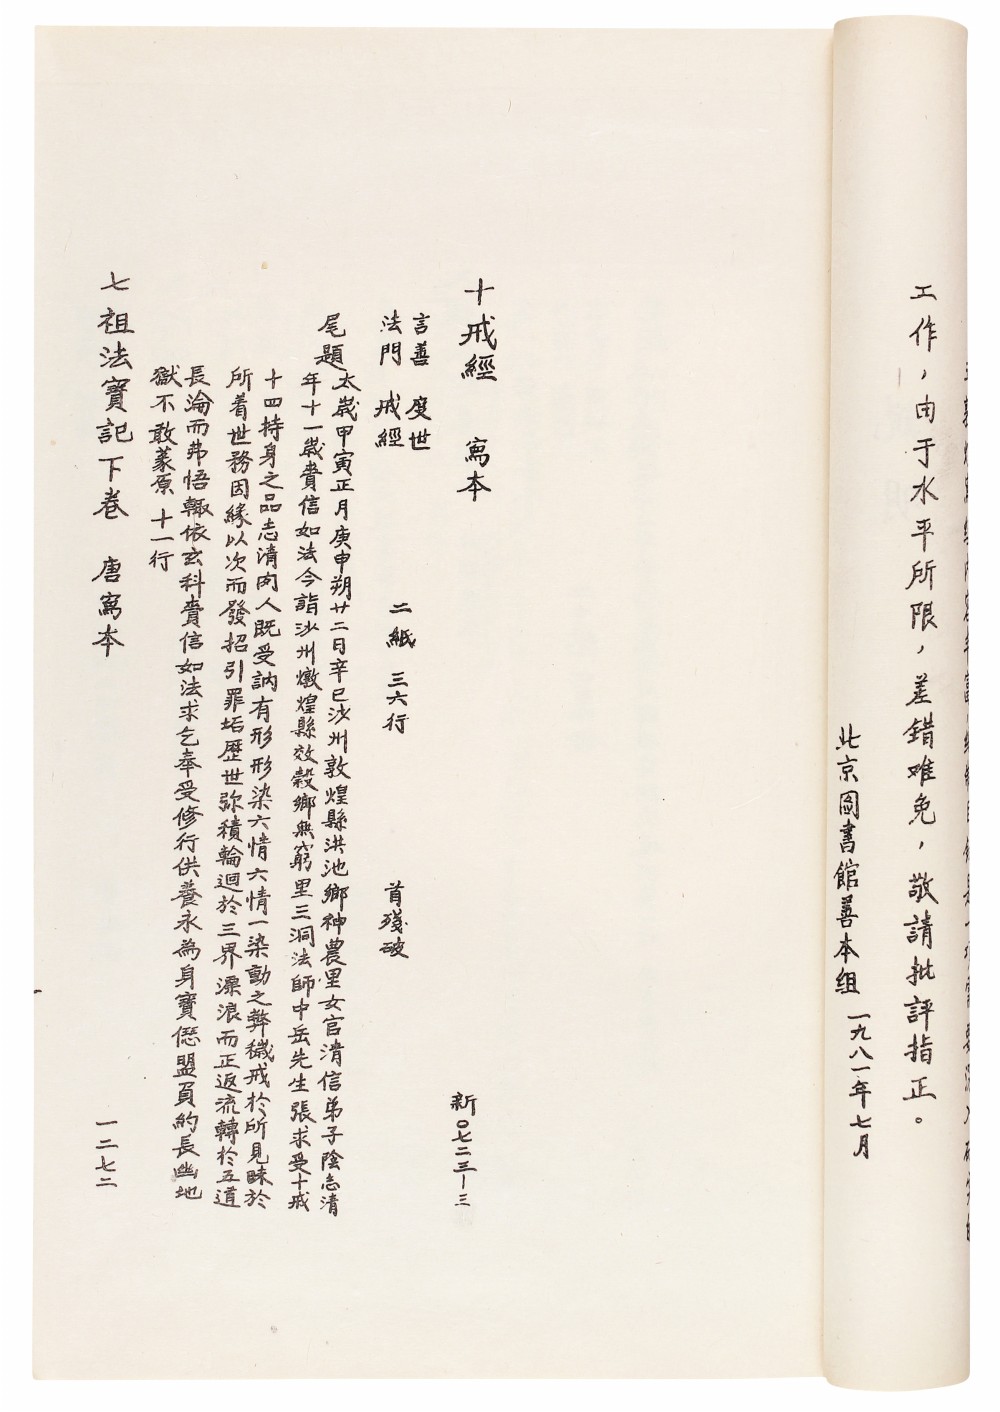 工作，由于水平所限，差错难免，敬請批評指正。
北京图書館善本組 一九八一年七月
十戒經 寫本 新〇七二三—三
言善 度世
法門 戒經 二紙 三六行 首殘破
尾題
太歲甲寅正月庚申朔廿二日辛巳沙州敦煌縣洪池鄉神農里女官清信弟子陰志清
年十一歲賫信如法今詣沙州燉煌縣效穀鄉無窮里三洞法師中岳先生張求受十戒
十四持身之品志清肉人既受訥有形形染六情六情一染動之弊穢戒於所見昧於
所着世務因緣以次而發招引罪垢歷世弥積輪迴於三界漂浪而正返流轉於五道
長淪而弗悟輙依玄科賫信如法求乞奉受修行供養永為身寶僁盟負約長幽地
獄不敢蒙原 十一行
七祖法寶記下卷 唐寫本 一二七二